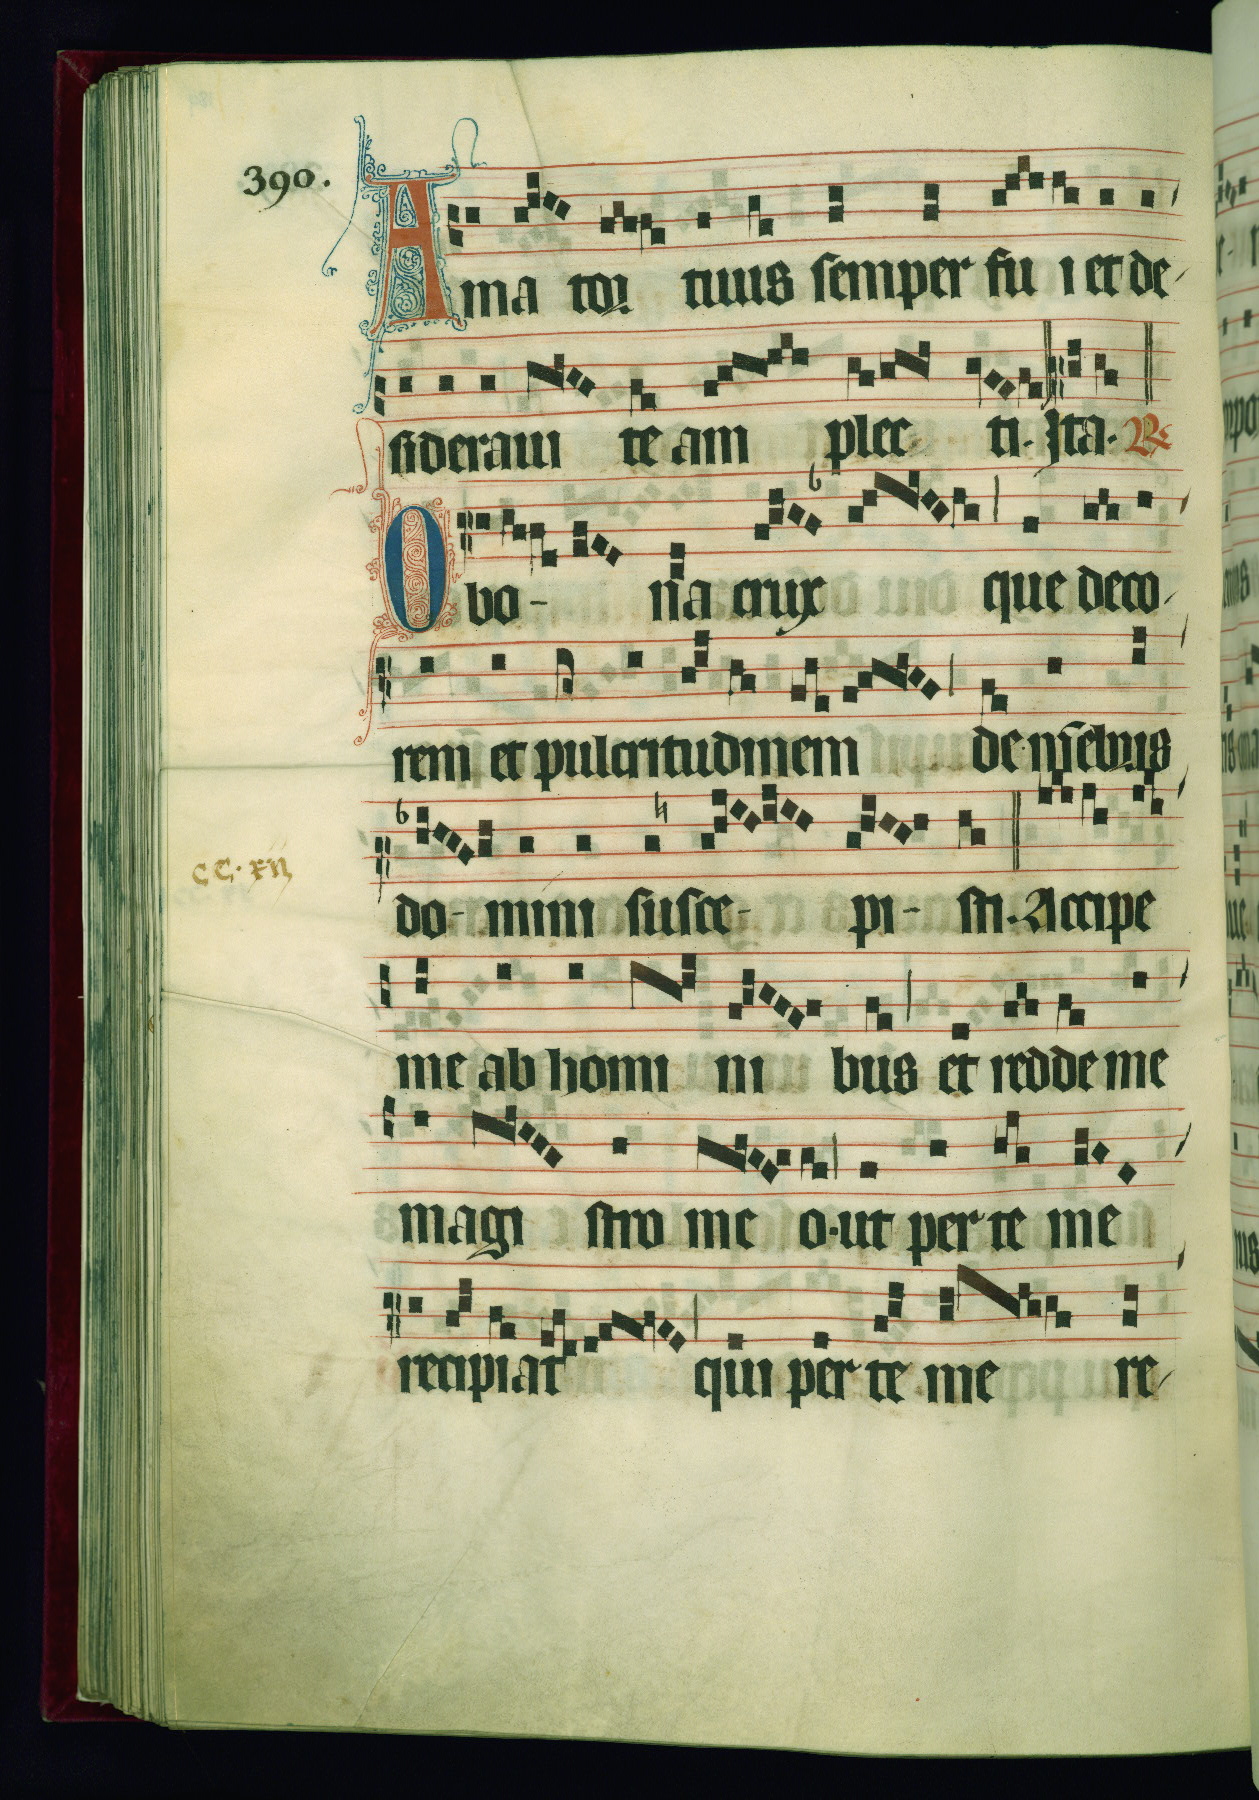 390.
Ama tor tuus semper fu i et de
sideraui te am plec ti. Ita. R
O bo- na crux que deco
rem et pulcritudinem de mēbris
CC. xii
do- mini susce- pi- sti. Accipe
me ab homi ni bus et redde me
magi stro me o. ut per te me
recipiat qui per te me re